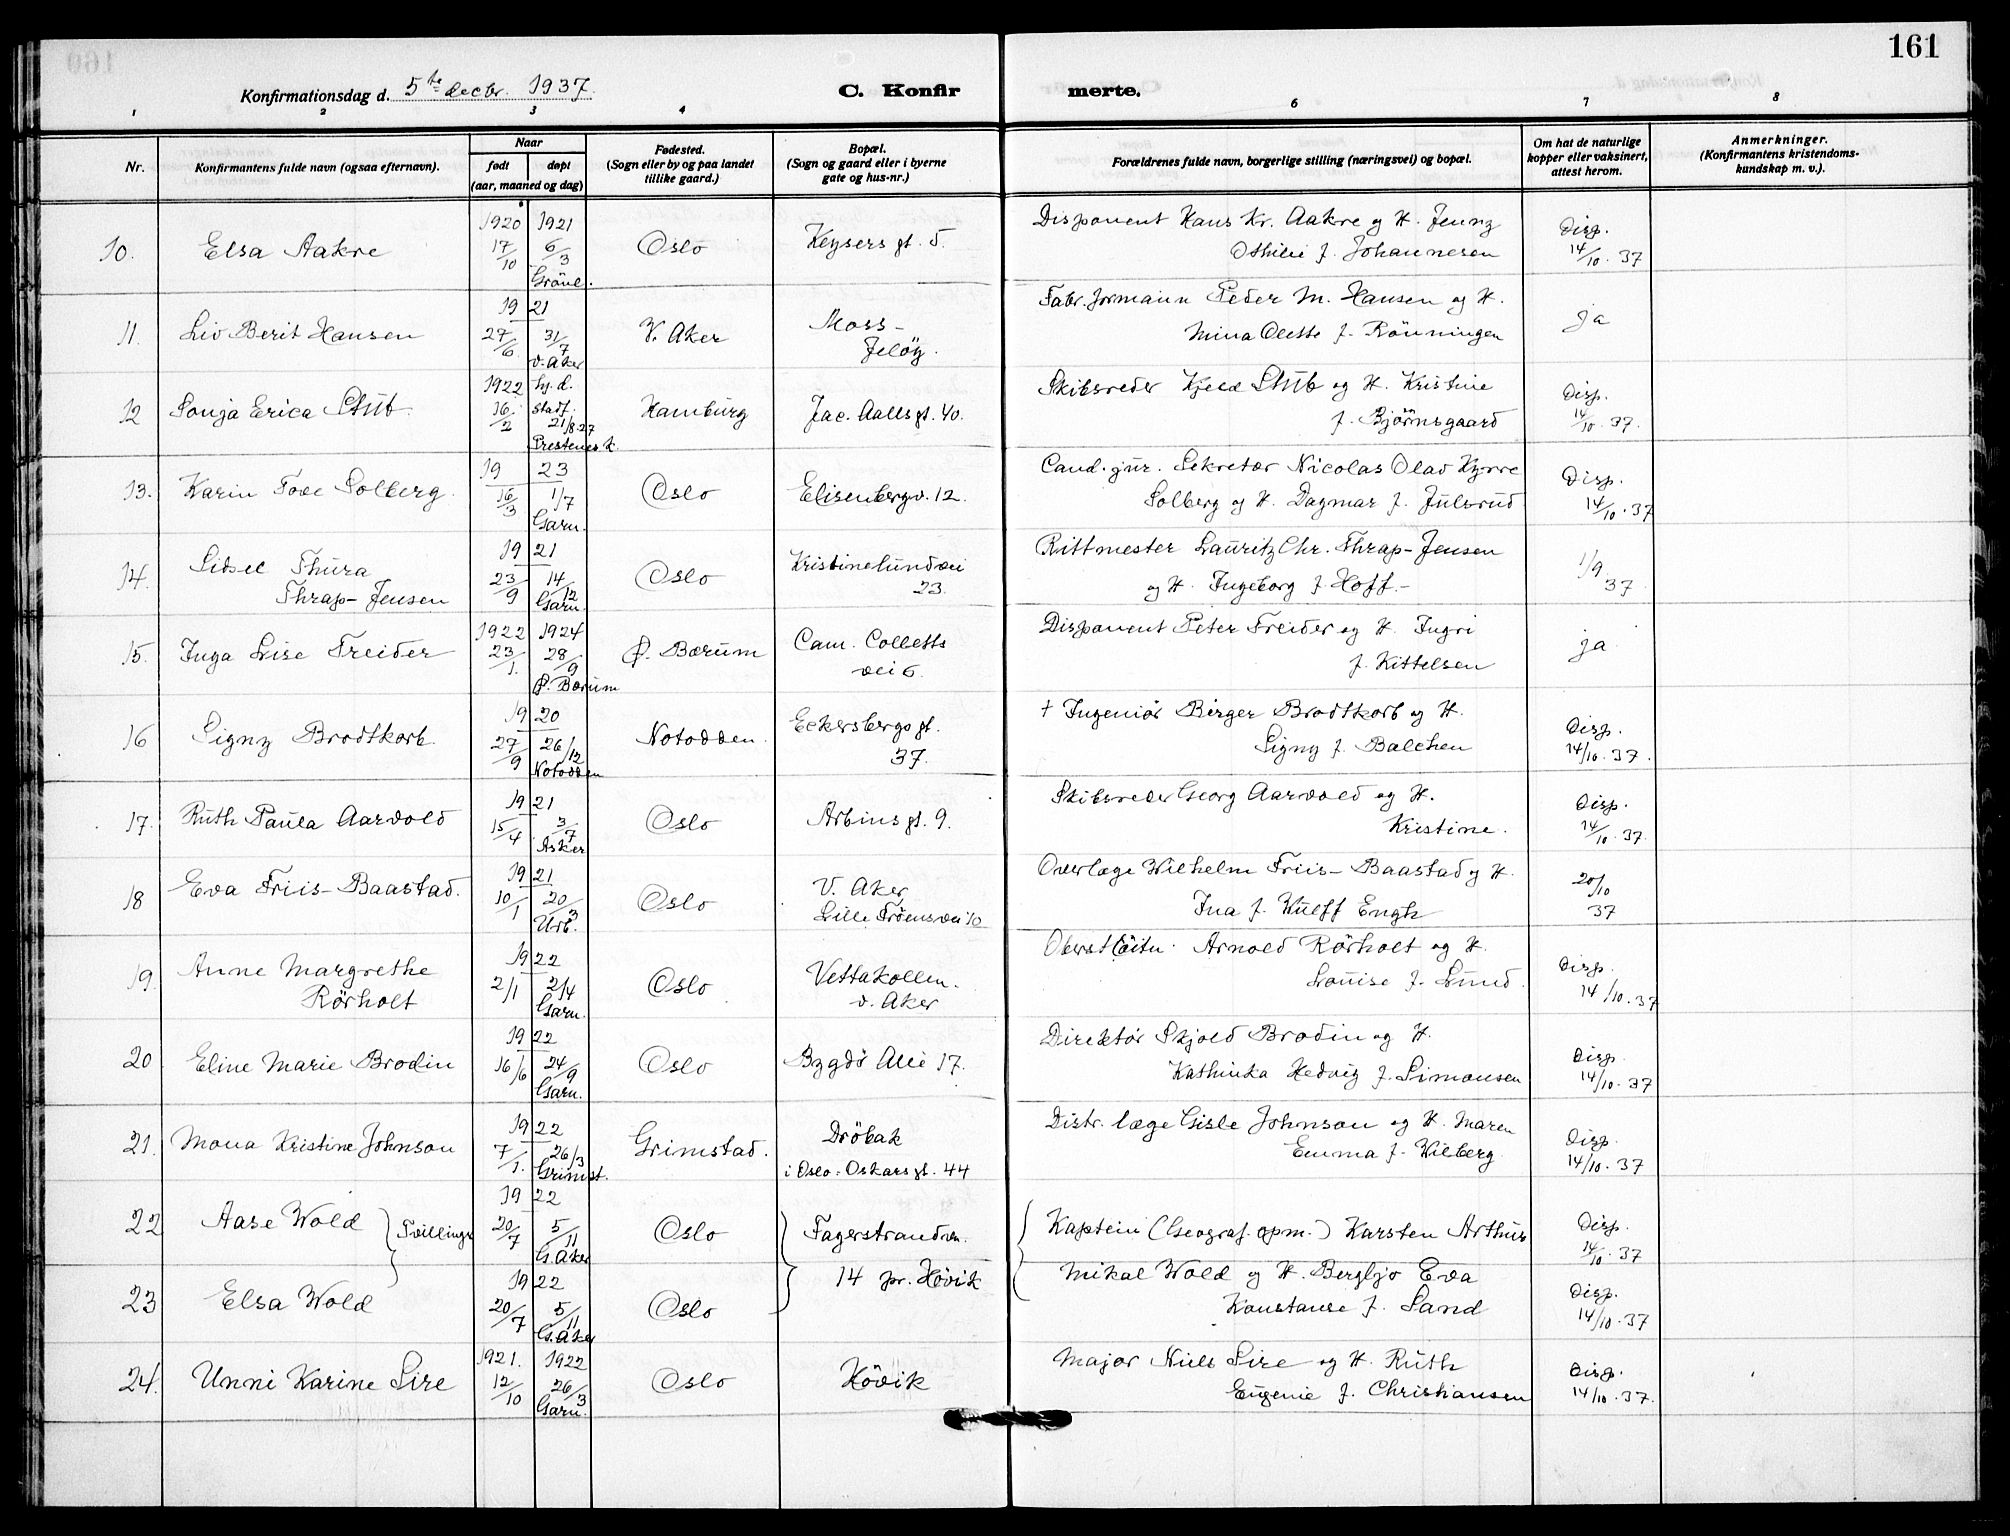 161
Konfirmationsdag d. 5te decbr. 1937.
C. Konfirmerte.
1 2 3 4 6 7 8
Nr.
Konfirmantens fulde navn (ogsaa efternavn).
Naar
født
døpt
(aar, maaned og dag)
Fødested.
(Sogn eller by og paa landet
tillike gaard.)
Bopæl.
(Sogn og gaard eller i byerne
gate og hus-nr.)
Forældrenes fulde navn, borgerlige stilling (næringsvei) og bopæl.
Om hat de naturlige
kopper eller vaksinert,
attest herom.
Anmerkninger.
(Konfirmantens kristendoms-
kundskap m. v.).
10. Elsa Aakre
1920 17/10
1921 6/3 Grönl.
Oslo
Keysers gt. 5.
Disponent Hans Kr. Aakre og H. Jenny
Othilie f. Johannesen
Disp.
14/10. 37
11. Liv Berit Hansen
1921
27/6
31/7 V. Aker
V. Aker
Moss-
Jelöy.
Fabr. formann Peder M. Hansen og H.
Mina Olette f. Rönningen
Ja
12 Sonja Erica Stub.
1922 16/2
hj. d. stadf. 21/8.27
Prestenes k.
Hamburg
Jac. Aalls gt. 40.
Skibsreder Kjeld Stub og H. Kristine
f. Björnsgaard
Disp.
14/10. 37.
13. Karin Tove Solberg.
1923
16/3
1/7 Garn.
Oslo
Elisenbergv. 12.
Cand. jur. Sekretær Nicolas Olav Kyrre
Solberg og H. Dagmar f. Julsrud
Disp.
14/10. 37
14. Sidsel Thura
Thrap-Jensen
1921
23/9
14/12 Garn.
Oslo
Kristinelundvei
23.
Rittmester Lauritz Chr. Thrap-Jensen
og H. Ingeborg f Hoff.-
1/9
37
15. Inga Lise Treider
1922 23/1.
1924 28/9
Ø. Bærum
Ø. Bærum
Cam. Colletts
vei 6.
Disponent Peter Treider og H. Ingri
f. Kittelsen
ja
16 Signy Brodtkorb.
1920
27/9
26/12 Notodden
Notodden.
Eckersbergs gt.
37.
† Ingeniör Birger Brodtkorb og H.
Signy f. Balchen
Disp.
14/10. 37.
17. Ruth Paula Aarvold
1921
15/4
3/7 Asker
Oslo
Arbins gt. 9.
Skibsreder Georg Aarvold og H.
Kristine.
Disp.
14/10. 37.
18 Eva Friis-Baastad.
1921
10/1
20/3 Urb.
Oslo
V. Aker
Lille Fröensvei 10
Overlæge Wilhelm Friis-Baastad og H.
Ina f. Wulff Engh
20/10
37
19. Anne Margrethe
Rörholt
1922
2/1
2/4 Garn.
Oslo
Vettakollen.
v. Aker
Oberstlöitn. Arnold Rörholt og H.
Louise f. Lund.
Disp.
14/10. 37
20. Eline Marie Brodin
1922
16/6
24/9 Garn.
Oslo
Bygdö Allé 17.
Direktör Skjold Brodin og H.
Kathinka Hedvig f. Simonsen
Disp.
14/10. 37
21. Mona Kristine Johnson
1922
7/1.
26/3 Grimst.
Grimstad.
Dröbak
i Oslo: Oskars gt. 44
Distr. læge Gisle Johnson og H. Maren
Emma f. Wilberg.
Disp.
14/10. 37
22 Aase Wold } Tvillinger
1922
20/7
5/11 G. Aker
Oslo
Fagerstrandvn.
14 pr. Hövik
Kaptein (Geograf. opm.) Karsten Arthur
Mikal Wold og H. Bergljo Eva
Konstanse f. Sand
Disp.
14/10. 37
23 Elsa Wold
1922
20/7
5/11 G. Aker
Oslo
Disp.
14/10. 37
24. Unni Karine Lire
1921. 12/10
1922 26/3 Garn.
Oslo
Hövik
Major Niels Lire og H. Ruth
Eugenie f. Christiansen
Disp.
14/10. 37.